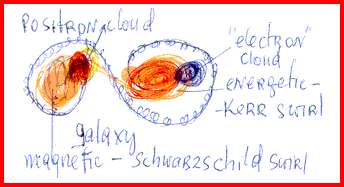 POSITRON CLOUD
"electron"
cloud
energetic-
-KERR SWIRL
galaxy
magnetic - SCHWARZSCHILD SWIRL